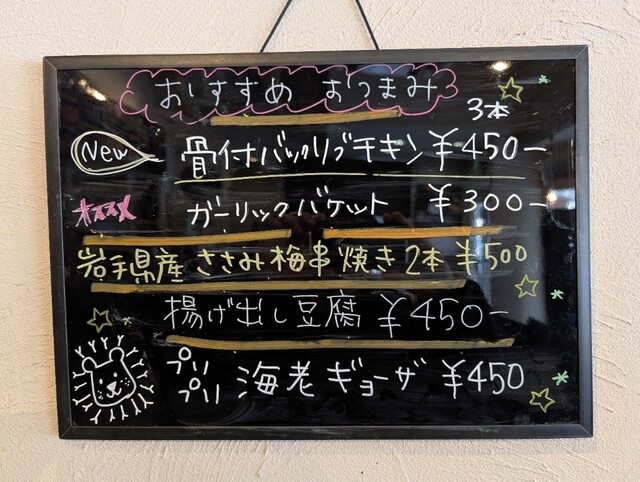 おすすめ おつまみ
New 骨付バックリブチキン 3本 ¥450-
オススメ ガーリックバケット ¥300-
岩手県産 ささみ梅串焼き 2本 ¥500
揚げ出し豆腐 ¥450-
プリプリ 海老ギョーザ ¥450